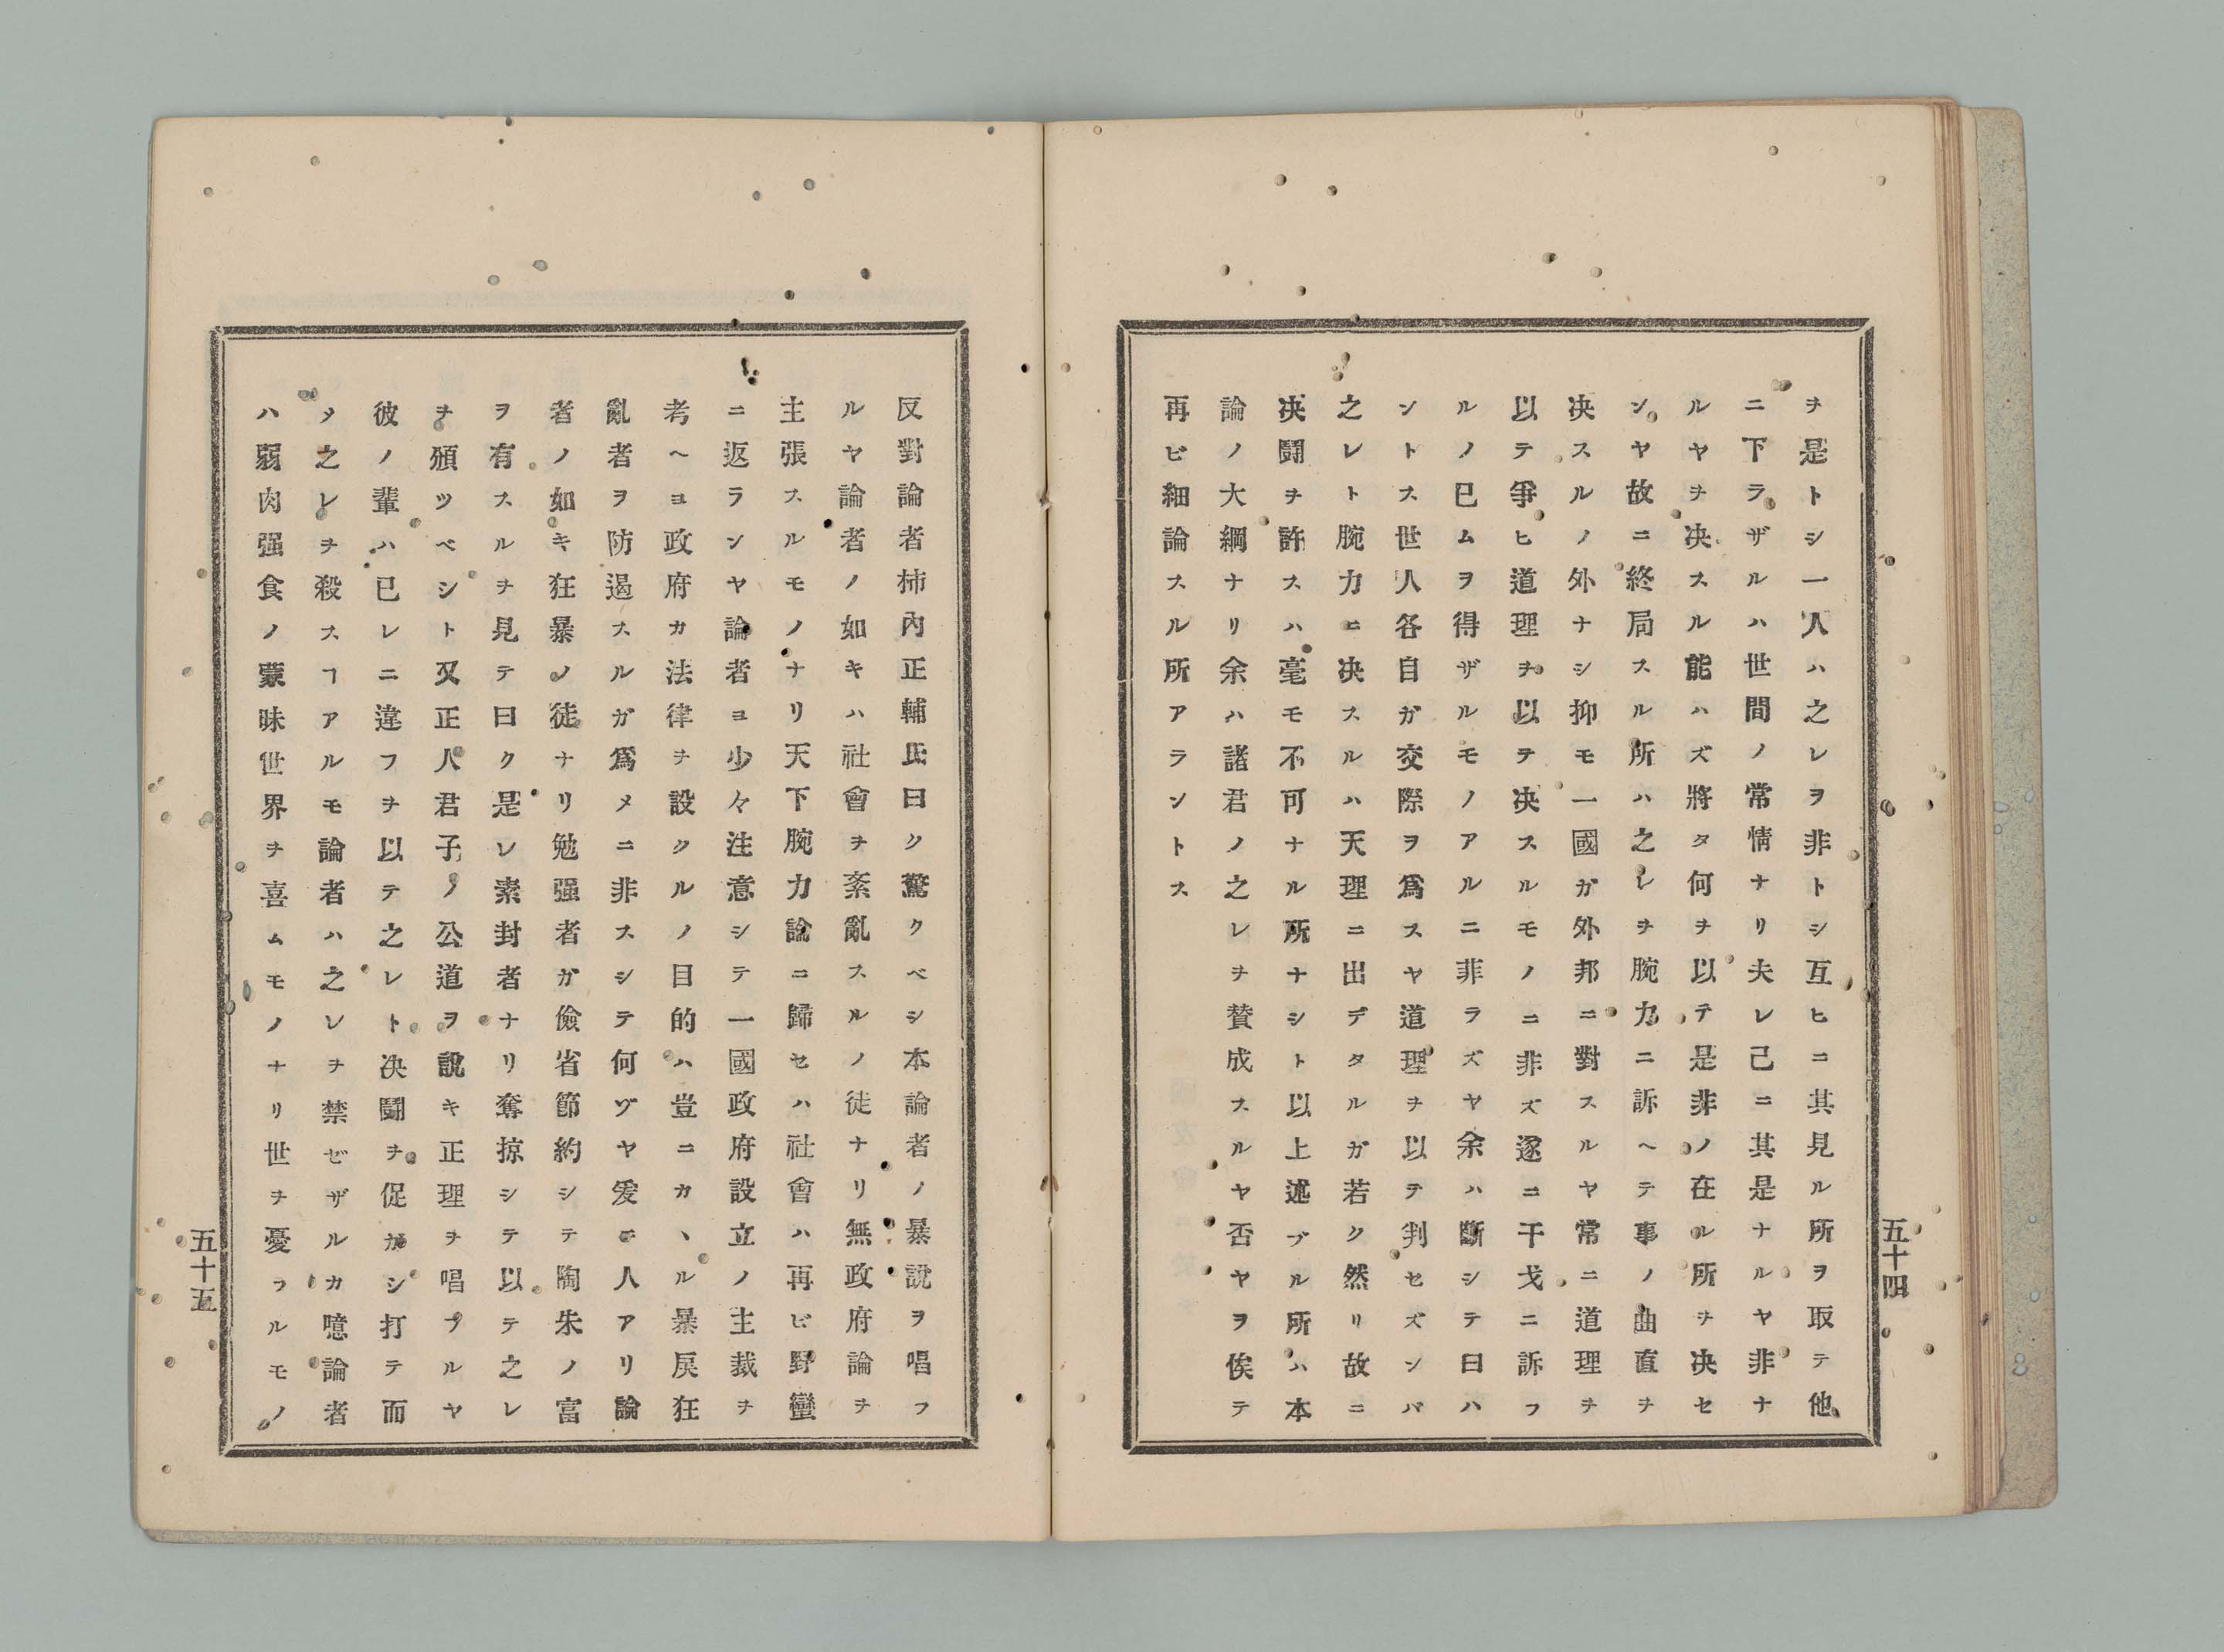 ヲ是トシ一人ハ之レヲ非トシ互ヒニ其見ル所ヲ取テ他
ニ下ラザルハ世間ノ常情ナリ夫レ己ニ其是ナルヤ非ナ
ルヤヲ决スル能ハズ將タ何ヲ以テ是非ノ在ル所ヲ决セ
ンヤ故ニ終局スル所ハ之レヲ腕力ニ訴ヘテ事ノ曲直ヲ
决スルノ外ナシ抑モ一國ガ外邦ニ對スルヤ常ニ道理ヲ
以テ爭ヒ道理ヲ以テ决スルモノニ非ズ遂ニ干戈ニ訴フ
ルノ已ムヲ得ザルモノアルニ非ラズヤ余ハ斷シテ曰ハ
ントス世人各自ガ交際ヲ爲スヤ道理ヲ以テ判セズンバ
之レト腕力ニ决スルハ天理ニ出デタルガ若ク然リ故ニ
决鬪ヲ許スハ毫モ不可ナル所ナシト以上述ブル所ハ本
論ノ大綱ナリ余ハ諸君ノ之レヲ賛成スルヤ否ヤヲ俟テ
再ビ細論スル所アラントス
五十四
反對論者柿內正輔氏曰ク驚クベシ本論者ノ暴說ヲ唱フ
ルヤ論者ノ如キハ社會ヲ紊亂スルノ徒ナリ無政府論ヲ
主張スルモノナリ天下腕力論ニ歸セハ社會ハ再ビ野蠻
ニ返ランヤ論者ヨ少々注意シテ一國政府設立ノ主裁ヲ
考ヘヨ政府カ法律ヲ設クルノ目的ハ豈ニカヽル暴戾狂
亂者ヲ防遏スルガ爲メニ非スシテ何ゾヤ爰ニ人アリ論
者ノ如キ狂暴ノ徒ナリ勉强者ガ儉省節約シテ陶朱ノ富
ヲ有スルヲ見テ曰ク是レ素封者ナリ奪掠シテ以テ之レ
ヲ頒ツベシト又正人君子ノ公道ヲ說キ正理ヲ唱フルヤ
彼ノ輩ハ已レニ違フヲ以テ之レト决鬪ヲ促ガシ打テ而
メ之レヲ殺スヿアルモ論者ハ之レヲ禁ゼザルカ噫論者
ハ弱肉强食ノ蒙昧世界ヲ喜ムモノナリ世ヲ憂フルモノ
五十五